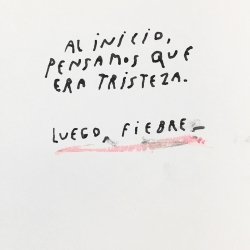 AL INICIO,
PENSAMOS QUE
ERA TRISTEZA.
LUEGO, FIEBRE_